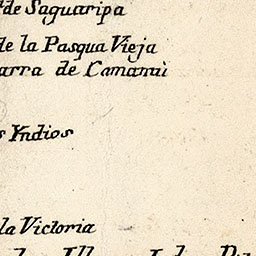 de Saguaripa
de la Pasqua Vieja
arra de Camamù
s Yndios
la Victoria